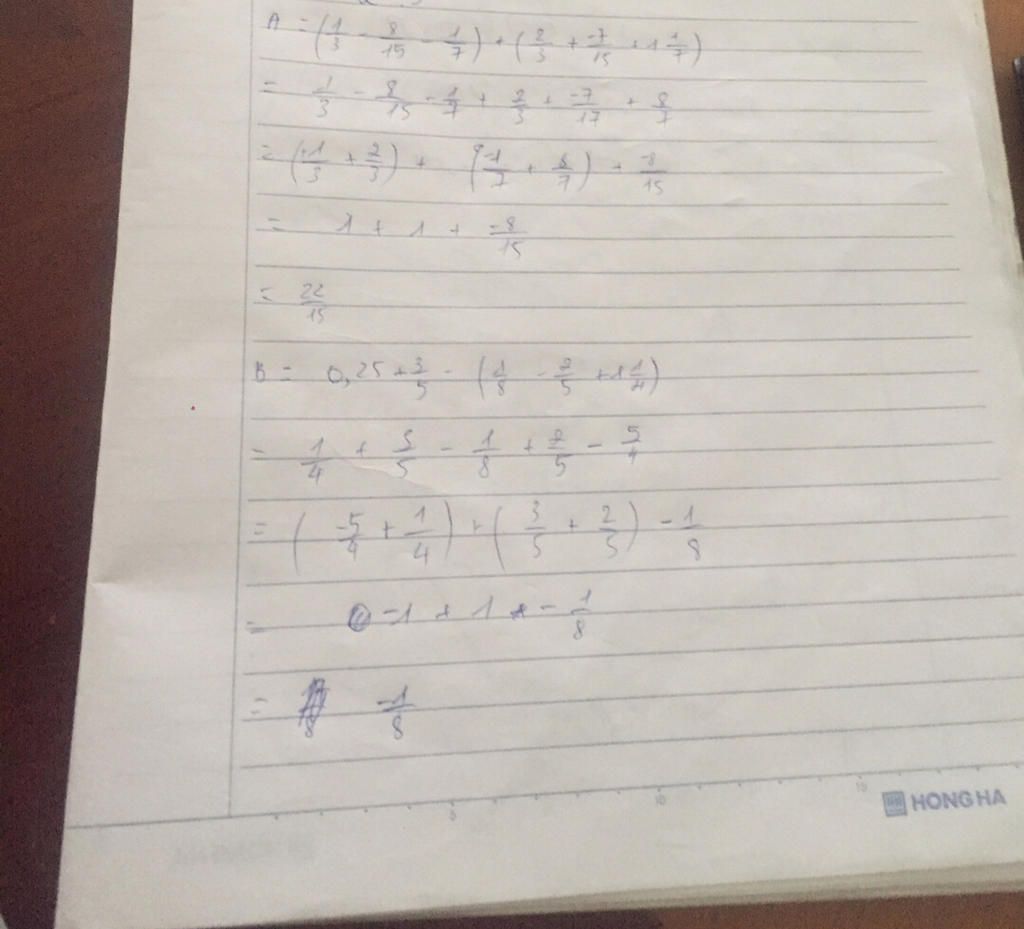 A = (1/3 - 8/15 - 1/7) + (2/3 + -7/15 + 1 1/7)
= 1/3 - 8/15 - 1/7 + 2/3 + -7/17 + 8/7
= (1/3 + 2/3) + (-1/7 + 8/7) + -8/15
= 1 + 1 + -8/15
= 22/15
B = 0,25 + 3/5 - (1/8 - 2/5 + 1 1/4)
= 1/4 + 3/5 - 1/8 + 2/5 - 5/4
= (-5/4 + 1/4) + (3/5 + 2/5) - 1/8
= -1 + 1 - 1/8
= -1/8
5 10 15
HONG HA